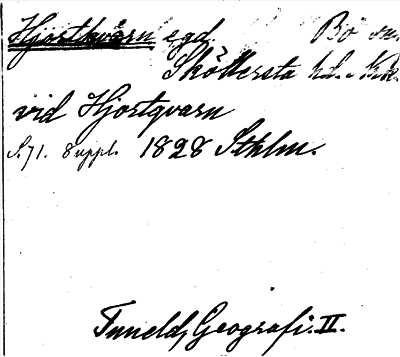 Hjortkvarn egd. Bo sn.
Sköllersta hd. Nke.
vid Hjortqvarn
S. 71. 8 uppl. 1828 Sthlm.
Tuneld, Geografi. II.